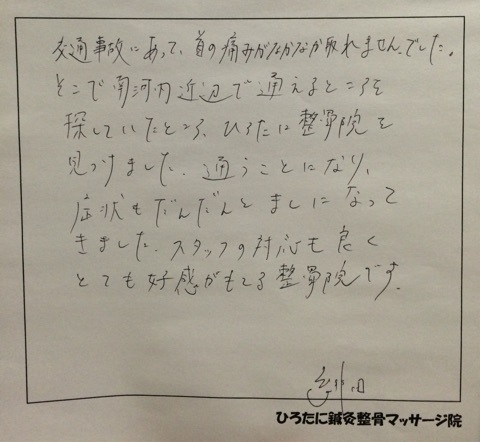 交通事故にあって、首の痛みがなかなか取れませんでした。
そこで南河内近辺で通えるところを
探していたところ、ひろたに整骨院を
見つけました。通うことになり、
症状もだんだんとましになって
きました。スタッフの対応も良く
とても好感がもてる整骨院です。
ひろたに鍼灸整骨マッサージ院